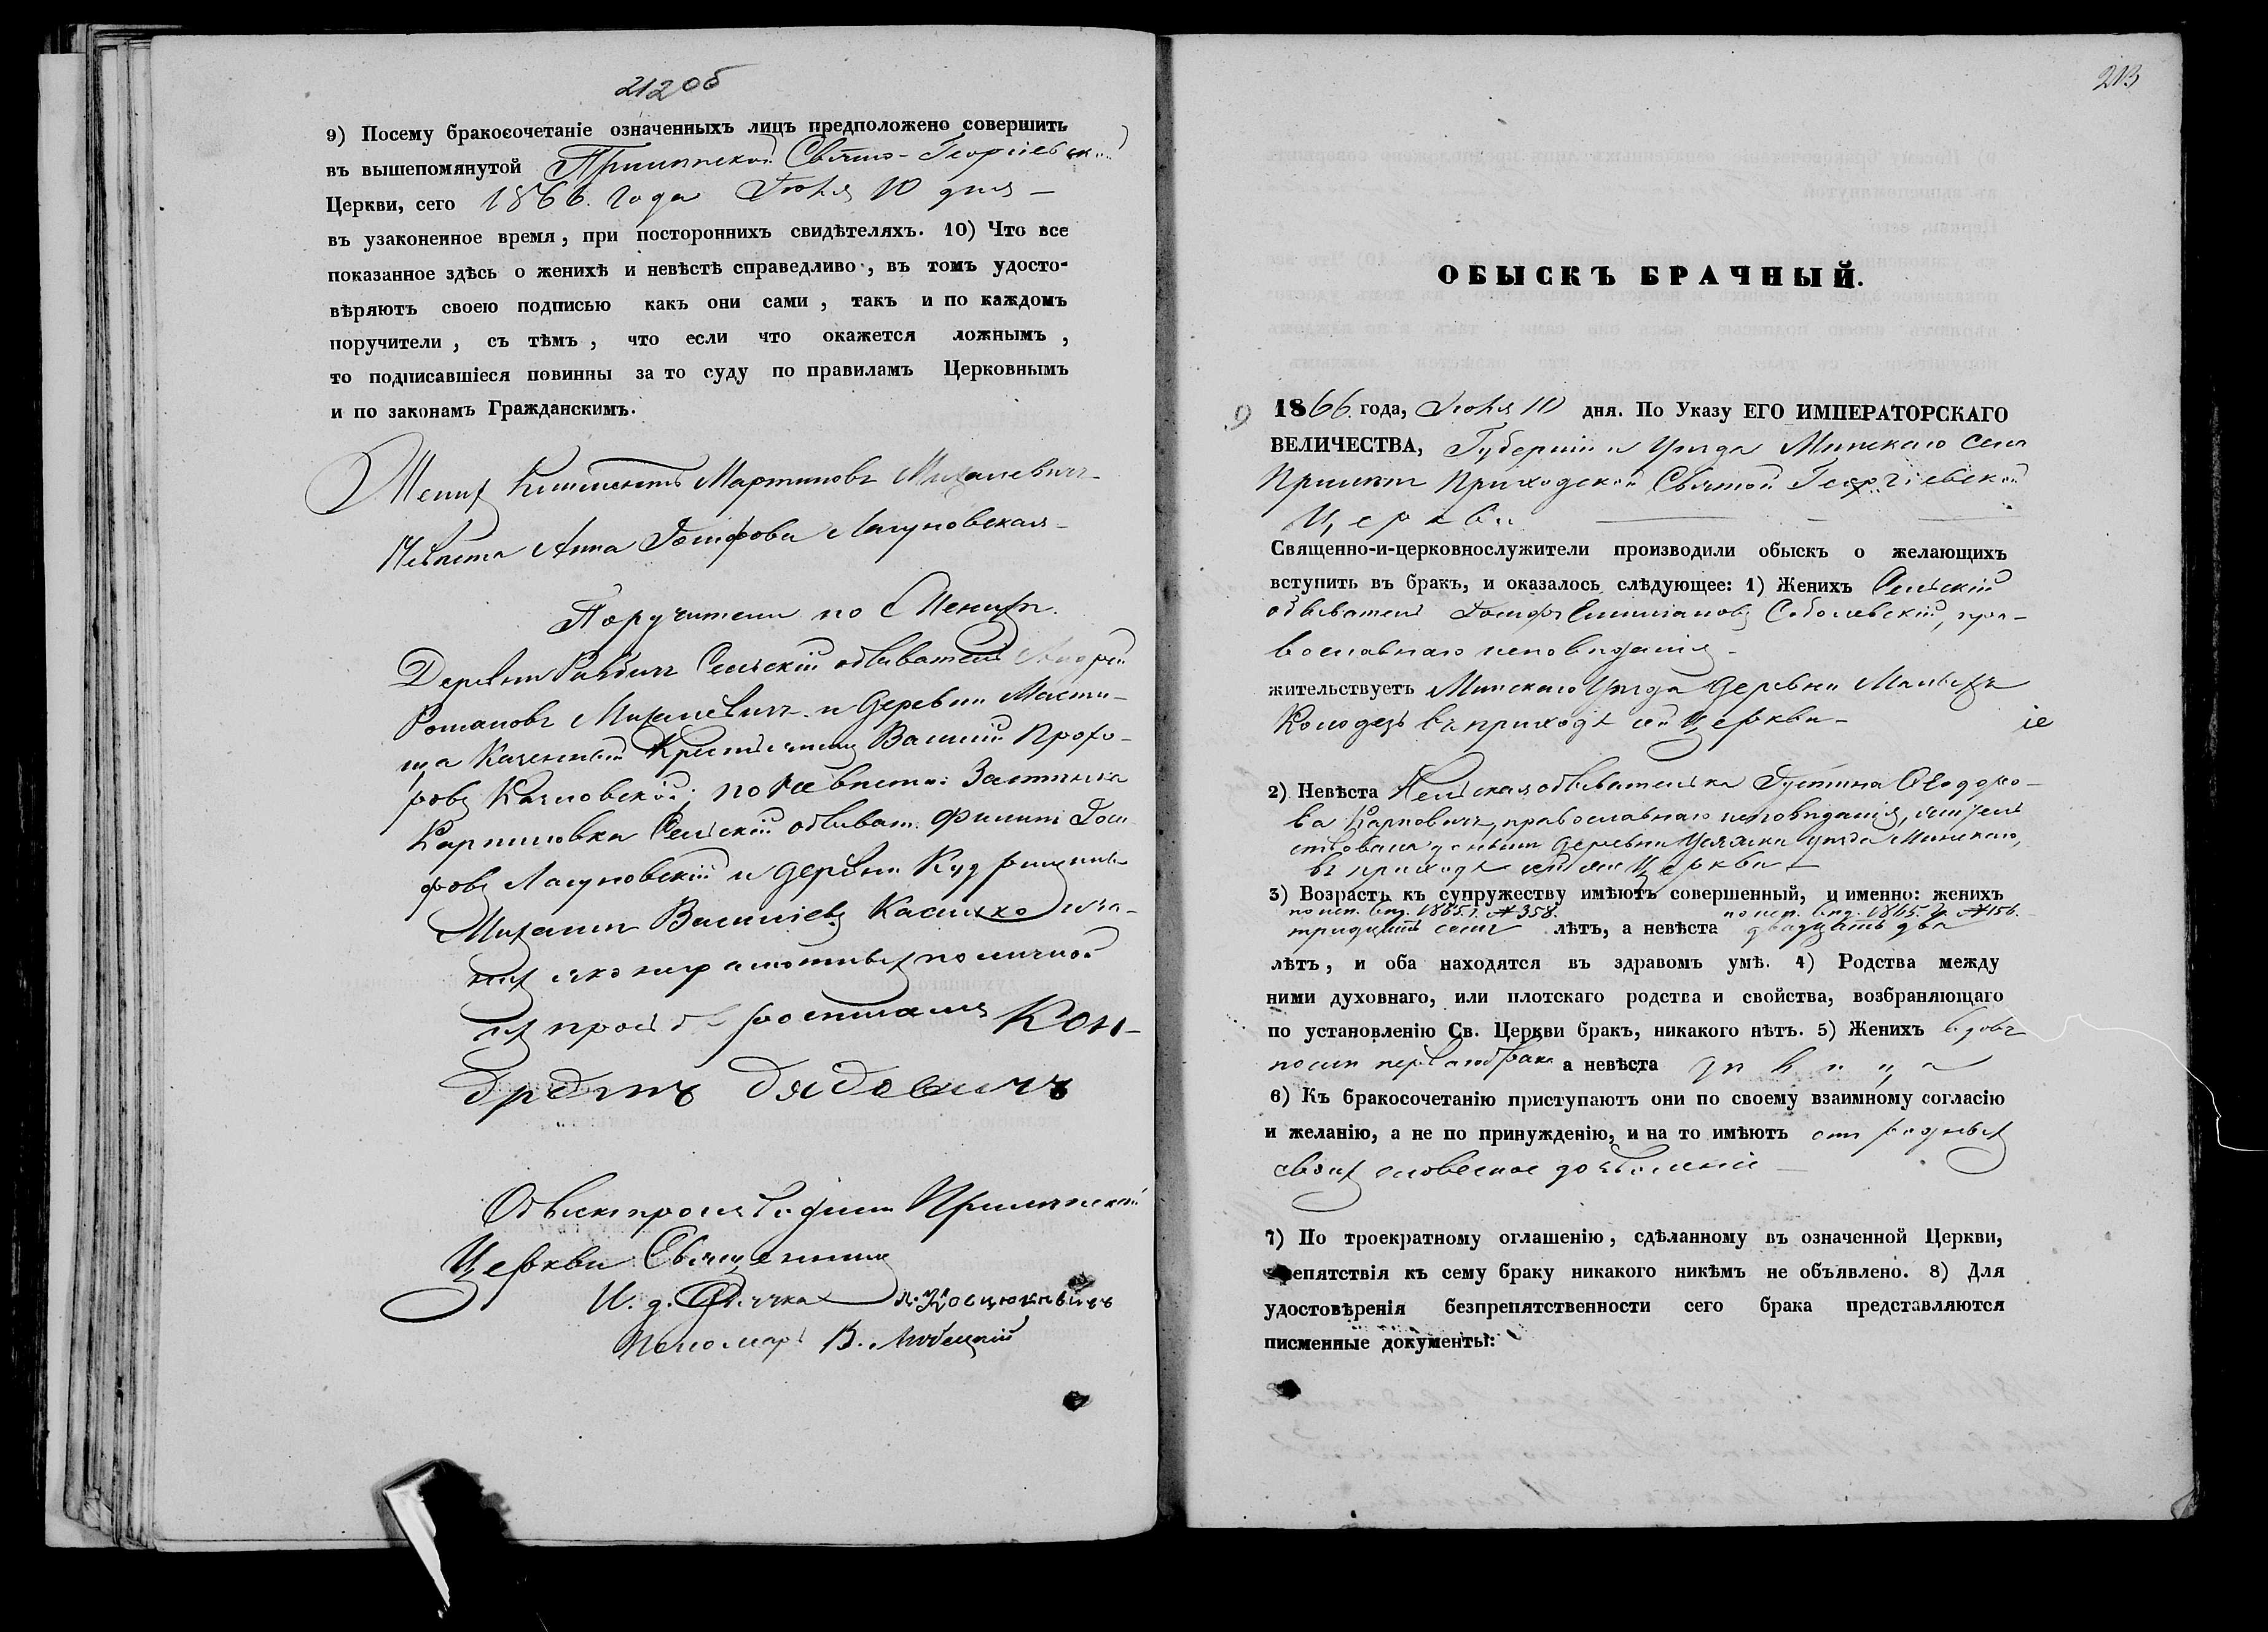 212 об
9) Посему бракосочетаніе означенныхъ лицъ предположено совершить
въ вышепомянутой Прилипской Свято-Георгіевской
Церкви, сего 1866. года Іюля 10 дня —
въ узаконенное время, при постороннихъ свидѣтеляхъ. 10) Что все
показанное здѣсь о женихѣ и невѣстѣ справедливо, въ томъ удосто-
вѣряютъ своею подписью какъ они сами, такъ и по каждомъ
поручители, съ тѣмъ, что если что окажется ложнымъ,
то подписавшіеся повинны за то суду по правиламъ Церковнымъ
и по законамъ Гражданскимъ.
Жених Климентъ Мартиновъ Михалевичъ
Невѣста Анна Іосифова Лагуновская
Поручители по Женихѣ.
Деревни Сельскій обыватель Андрей
Романовъ Михалевичъ и деревни
Казенный Крестьянинъ Василій Прохо-
ровъ Козловскій; по невѣстѣ: Застѣнка
Карпиловка Сельскій обыват. Филипъ Іоси-
фовъ Лагуновскій и деревни
Михаилъ Василіевъ а за
них яко неграмотных по личной
их прозьбѣ росписался Кон-
дратъ Дядовичъ
Обыскъ производили Прилипской
Церкви Священникъ
И. д. Дьячка
Пономарь В.
213
ОБЫСКЪ БРАЧНЫЙ.
9 1866. года, Іюля 10 дня. По Указу ЕГО ИМПЕРАТОРСКАГО
ВЕЛИЧЕСТВА, Губерніи и Уѣзда Минскаго села
Прилѣпъ Приходской Святой Георгіевской
Церкви
Священно-и-церковнослужители производили обыскъ о желающихъ
вступить въ бракъ, и оказалось слѣдующее: 1) Женихъ Сельскій
обыватель Іосифъ Соболевскій, пра-
вославнаго исповѣданія
жительствуетъ Минскаго Уѣзда деревни
Колодезь въ приходѣ сей Церкви —
іе
2) Невѣста Сельская обывателька Іустина Ѳеодоро-
ва Карповичъ, православнаго исповѣданія, жительствовала деревни Усяжи уѣзда Минскаго,
въ приходѣ Церкви
3) Возрастъ къ супружеству имѣютъ совершенный, и именно: женихъ
по исп. вѣд. 1865 г. № 358. по исп. вѣд. 1865. г. № 156.
тридцать семь лѣтъ, а невѣста двадцать два
лѣтъ, и оба находятся въ здравомъ умѣ. 4) Родства между
ними духовнаго, или плотскаго родства и свойства, возбраняющаго
по установленію Св. Церкви бракъ, никакого нѣтъ. 5) Женихъ вдовъ
послѣ перваго брака а невѣста дѣвица
6) Къ бракосочетанію приступаютъ они по своему взаимному согласію
и желанію, а не по принужденію, и на то имѣютъ от родных
своих словесное дозволеніе
7) По троекратному оглашенію, сдѣланному въ означенной Церкви,
епятствія къ сему браку никакого никѣмъ не объявлено. 8) Для
удостовѣренія безпрепятственности сего брака представляются
писменные документы: